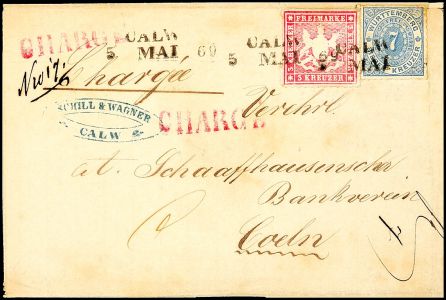 CHARGE
CALW
5 MAI 69
CALW
5 MAI 69
CALW
MAI
FREIMARKE
3 KREUZER
WÜRTTEMBERG
7
KREUZER
Nro 17.
Chargée
SCHILL & WAGNER
CALW
CHARGE
Verehrl.
A. Schaaffhausenscher
Bankverein
Coeln